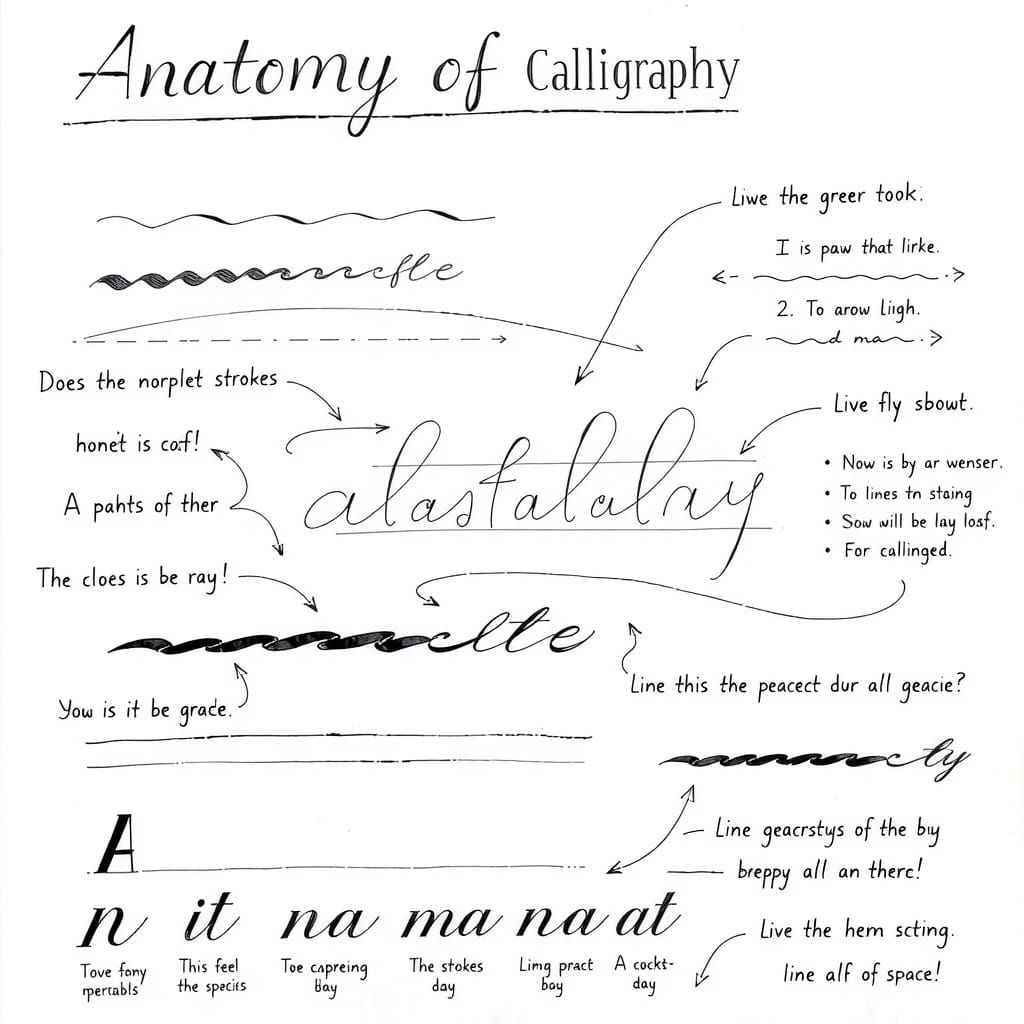 Anatomy of Calligraphy
Liwe the greer took.
I is paw that lirke.
2. To arow Liigh.
d ma
Does the norplet strokes
Live fly sbowt.
honet is caf!
A pahts of ther
• Now is by ar wenser.
• To lines tn staing
• Sow will be lay losf.
• For callinged.
alasfalalay
The cloes is be ray!
Line this the peacect dur all geacie?
Yow is it be grade.
A
Line geacrstys of the by
breppy all an therc!
n it na ma na at
Live the hem scting.
line alf of space!
Tove fany
This feel
the specirs
Toe capreing
Bay
The stokes
day
Limg pract
bay
A cockt-
day